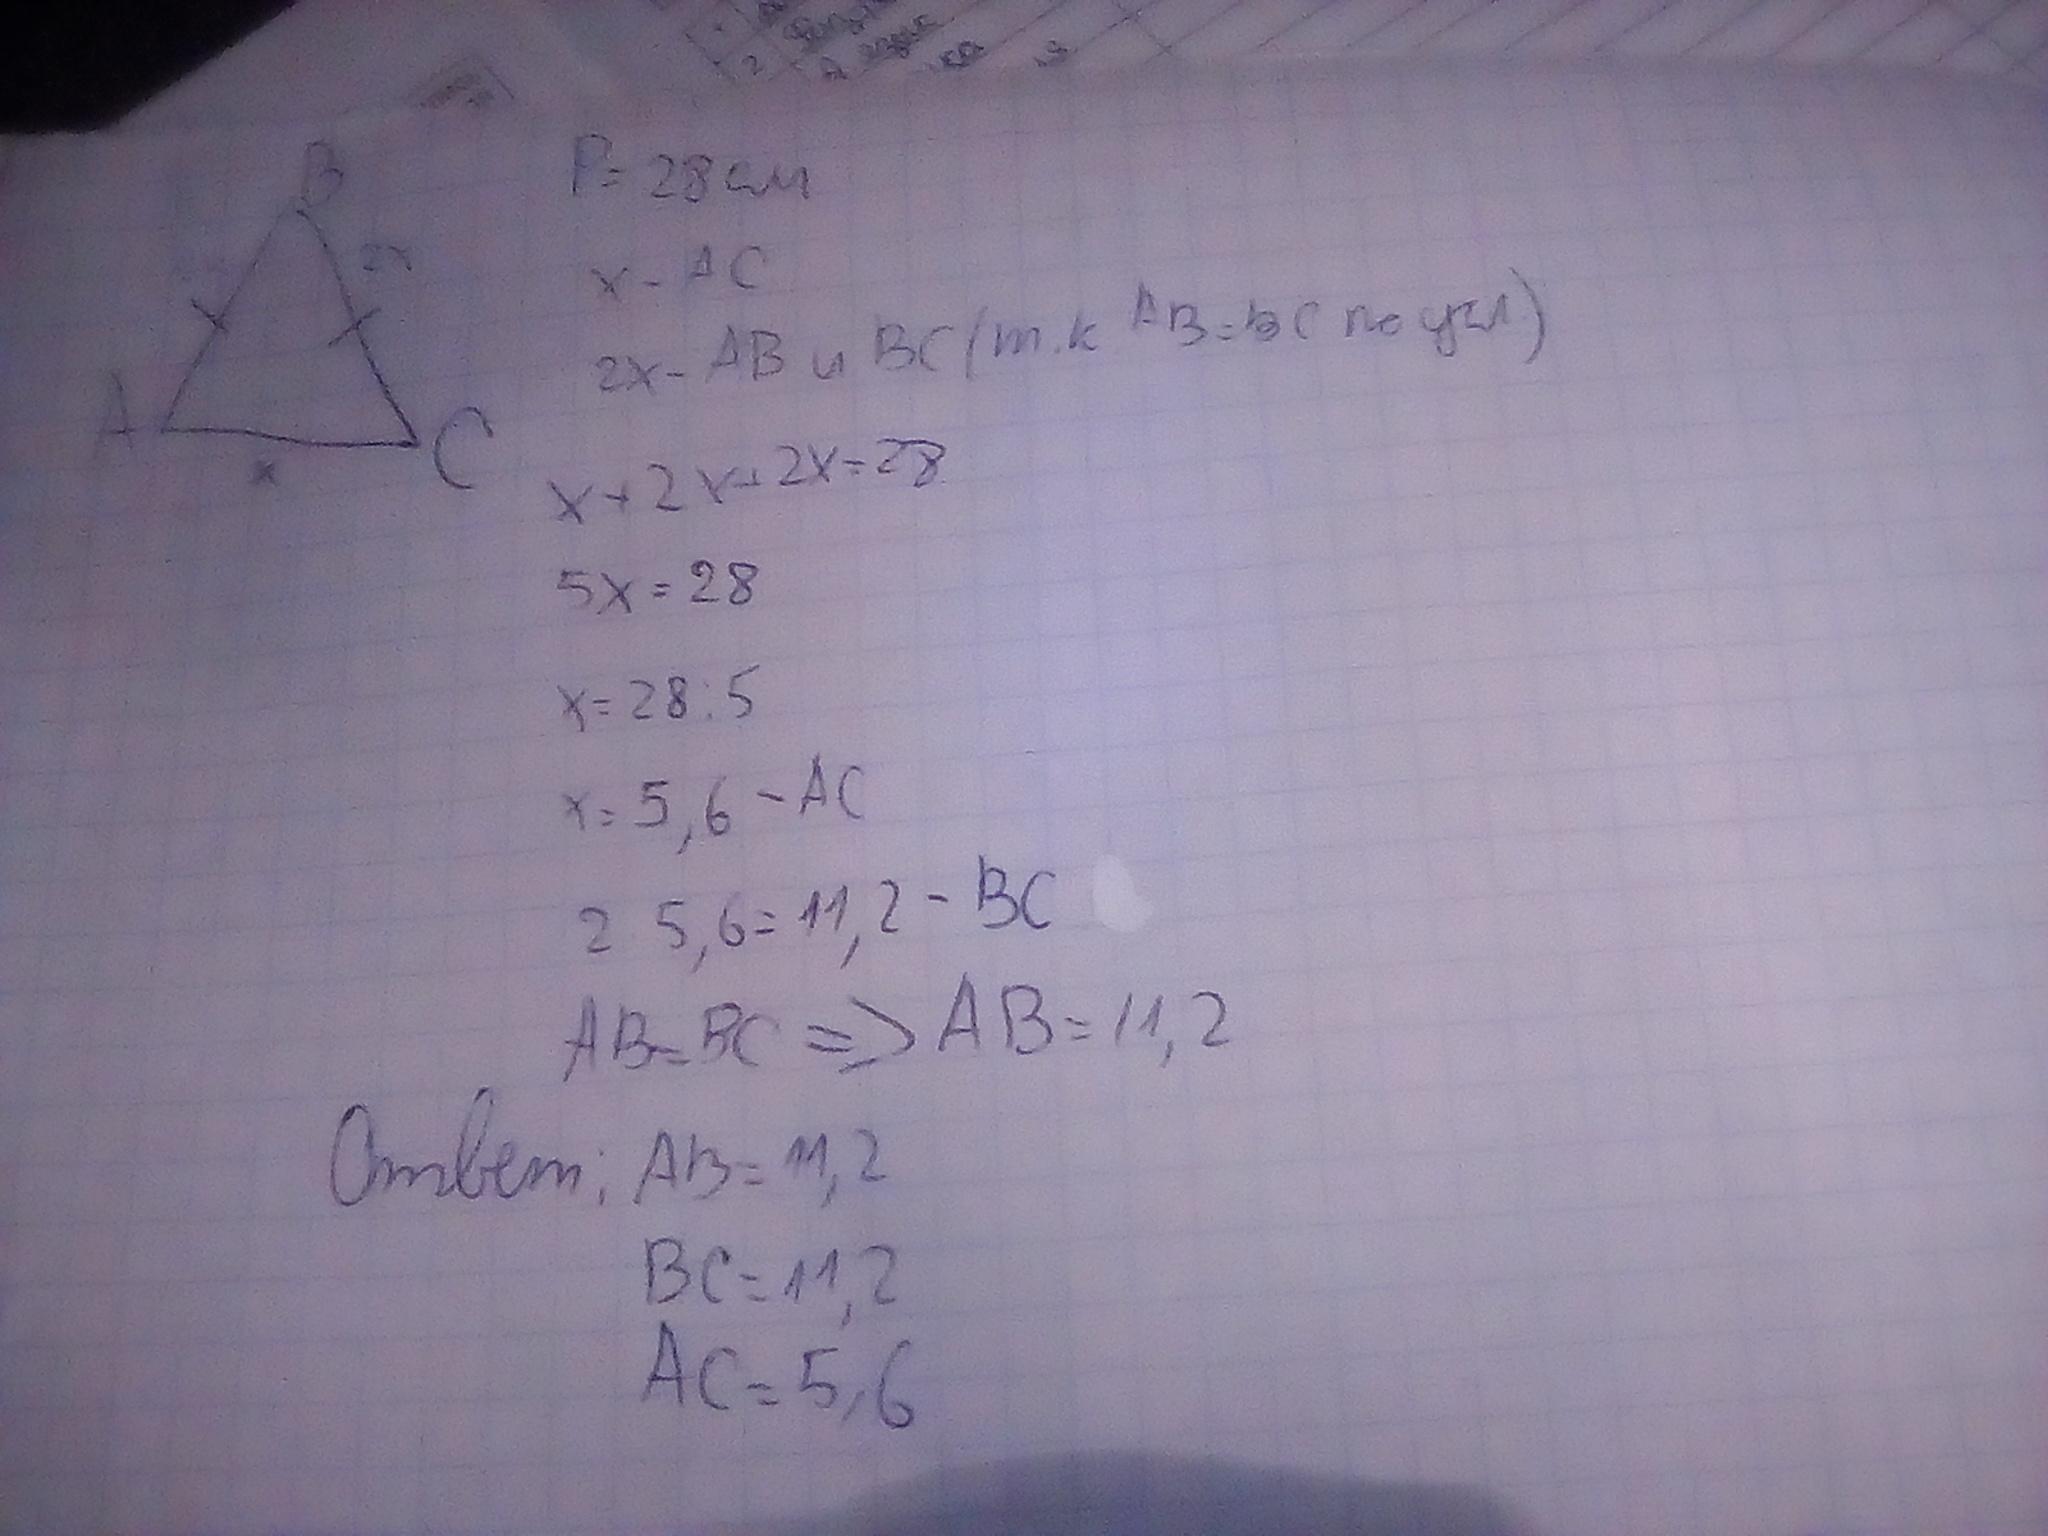 B
2x
2x
A
x
C
P= 28 см
x - AC
2x - AB и BC (т.к AB=BC по усл.)
x+2x+2x=28
5x=28
x=28:5
x=5,6 - AC
2 5,6=11,2 - BC
AB=BC => AB=11,2
Ответ: AB=11,2
BC=11,2
AC=5,6